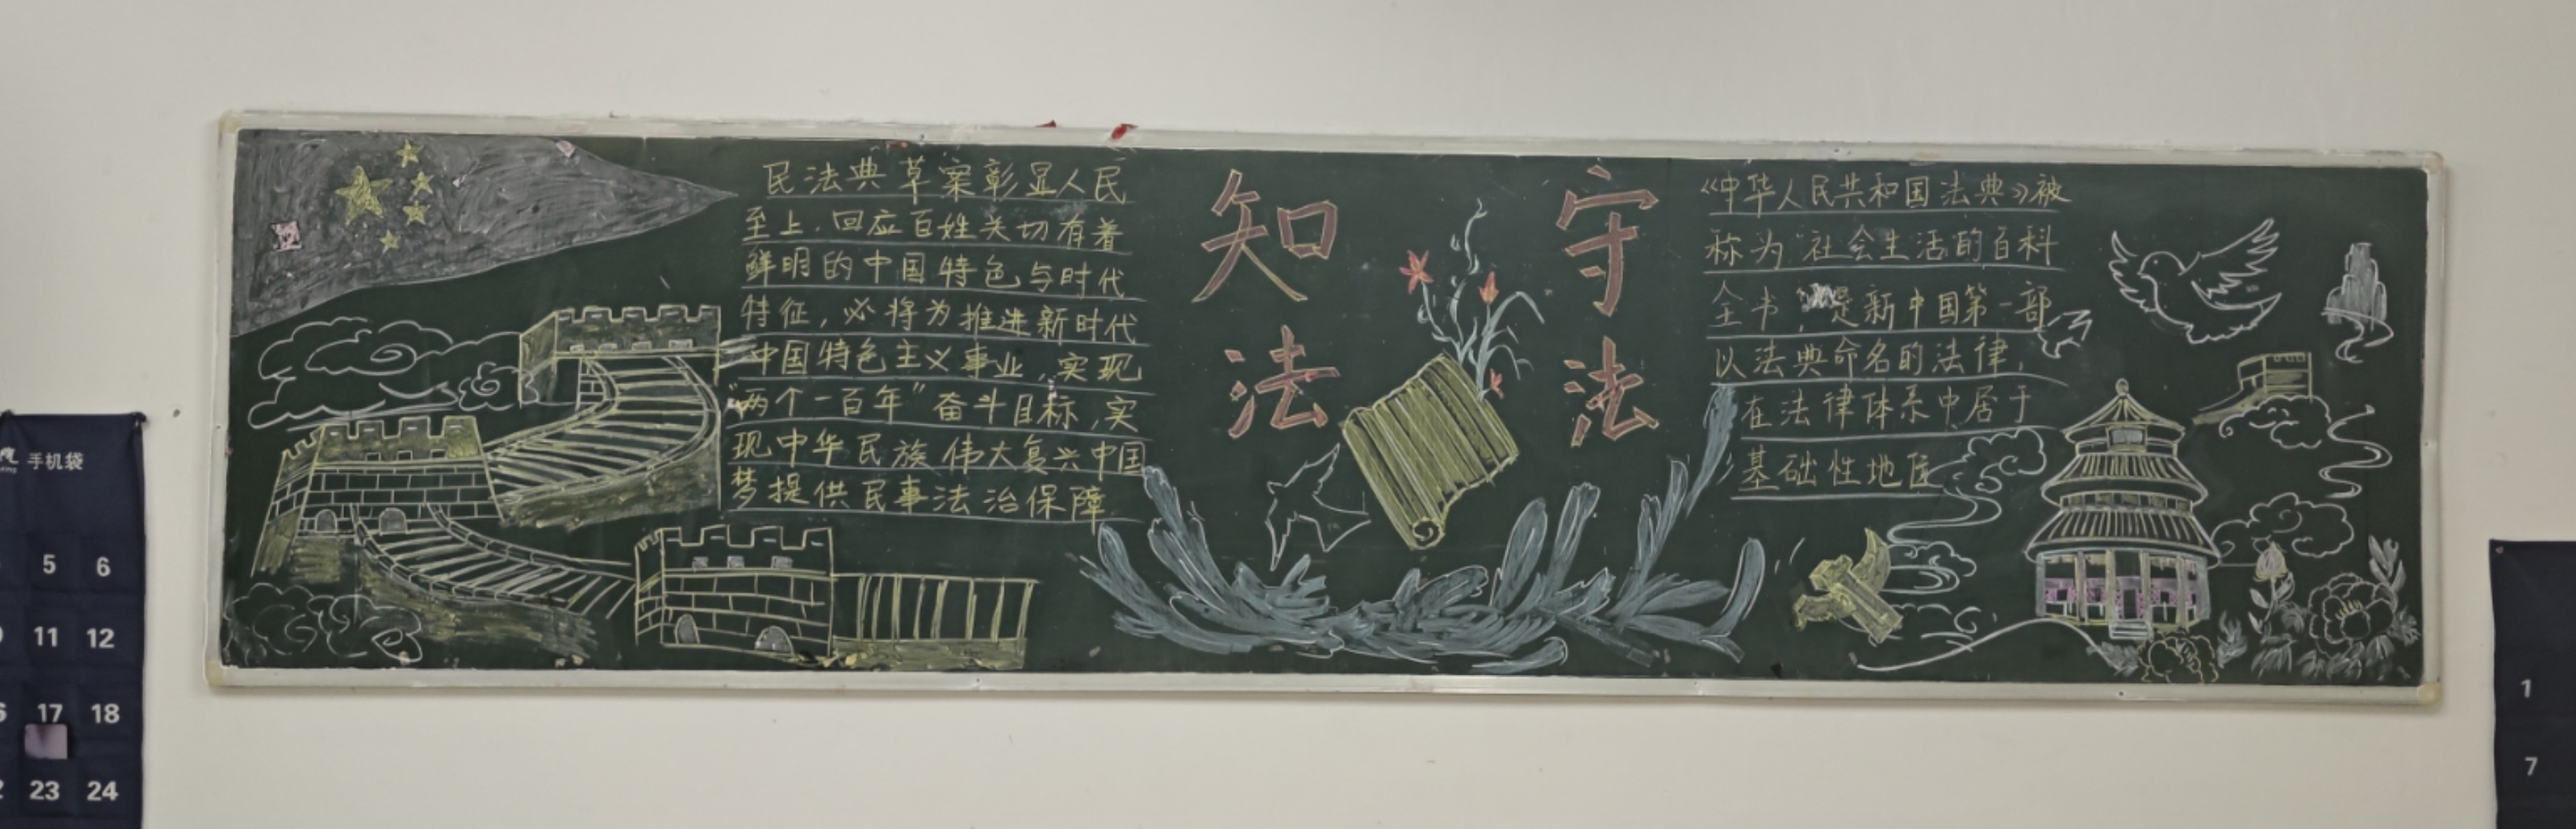 民法典草案彰显人民
至上，回应百姓关切有着
鲜明的中国特色与时代
特征，必将为推进新时代
中国特色主义事业，实现
“两个一百年”奋斗目标，实
现中华民族伟大复兴中国
梦提供民事法治保障
知
法
守
法
《中华人民共和国法典》被
称为“社会生活的百科
全书，是新中国第一部
以法典命名的法律，
在法律体系中居于
基础性地位
手机袋
5 6
11 12
17 18
23 24
1
7